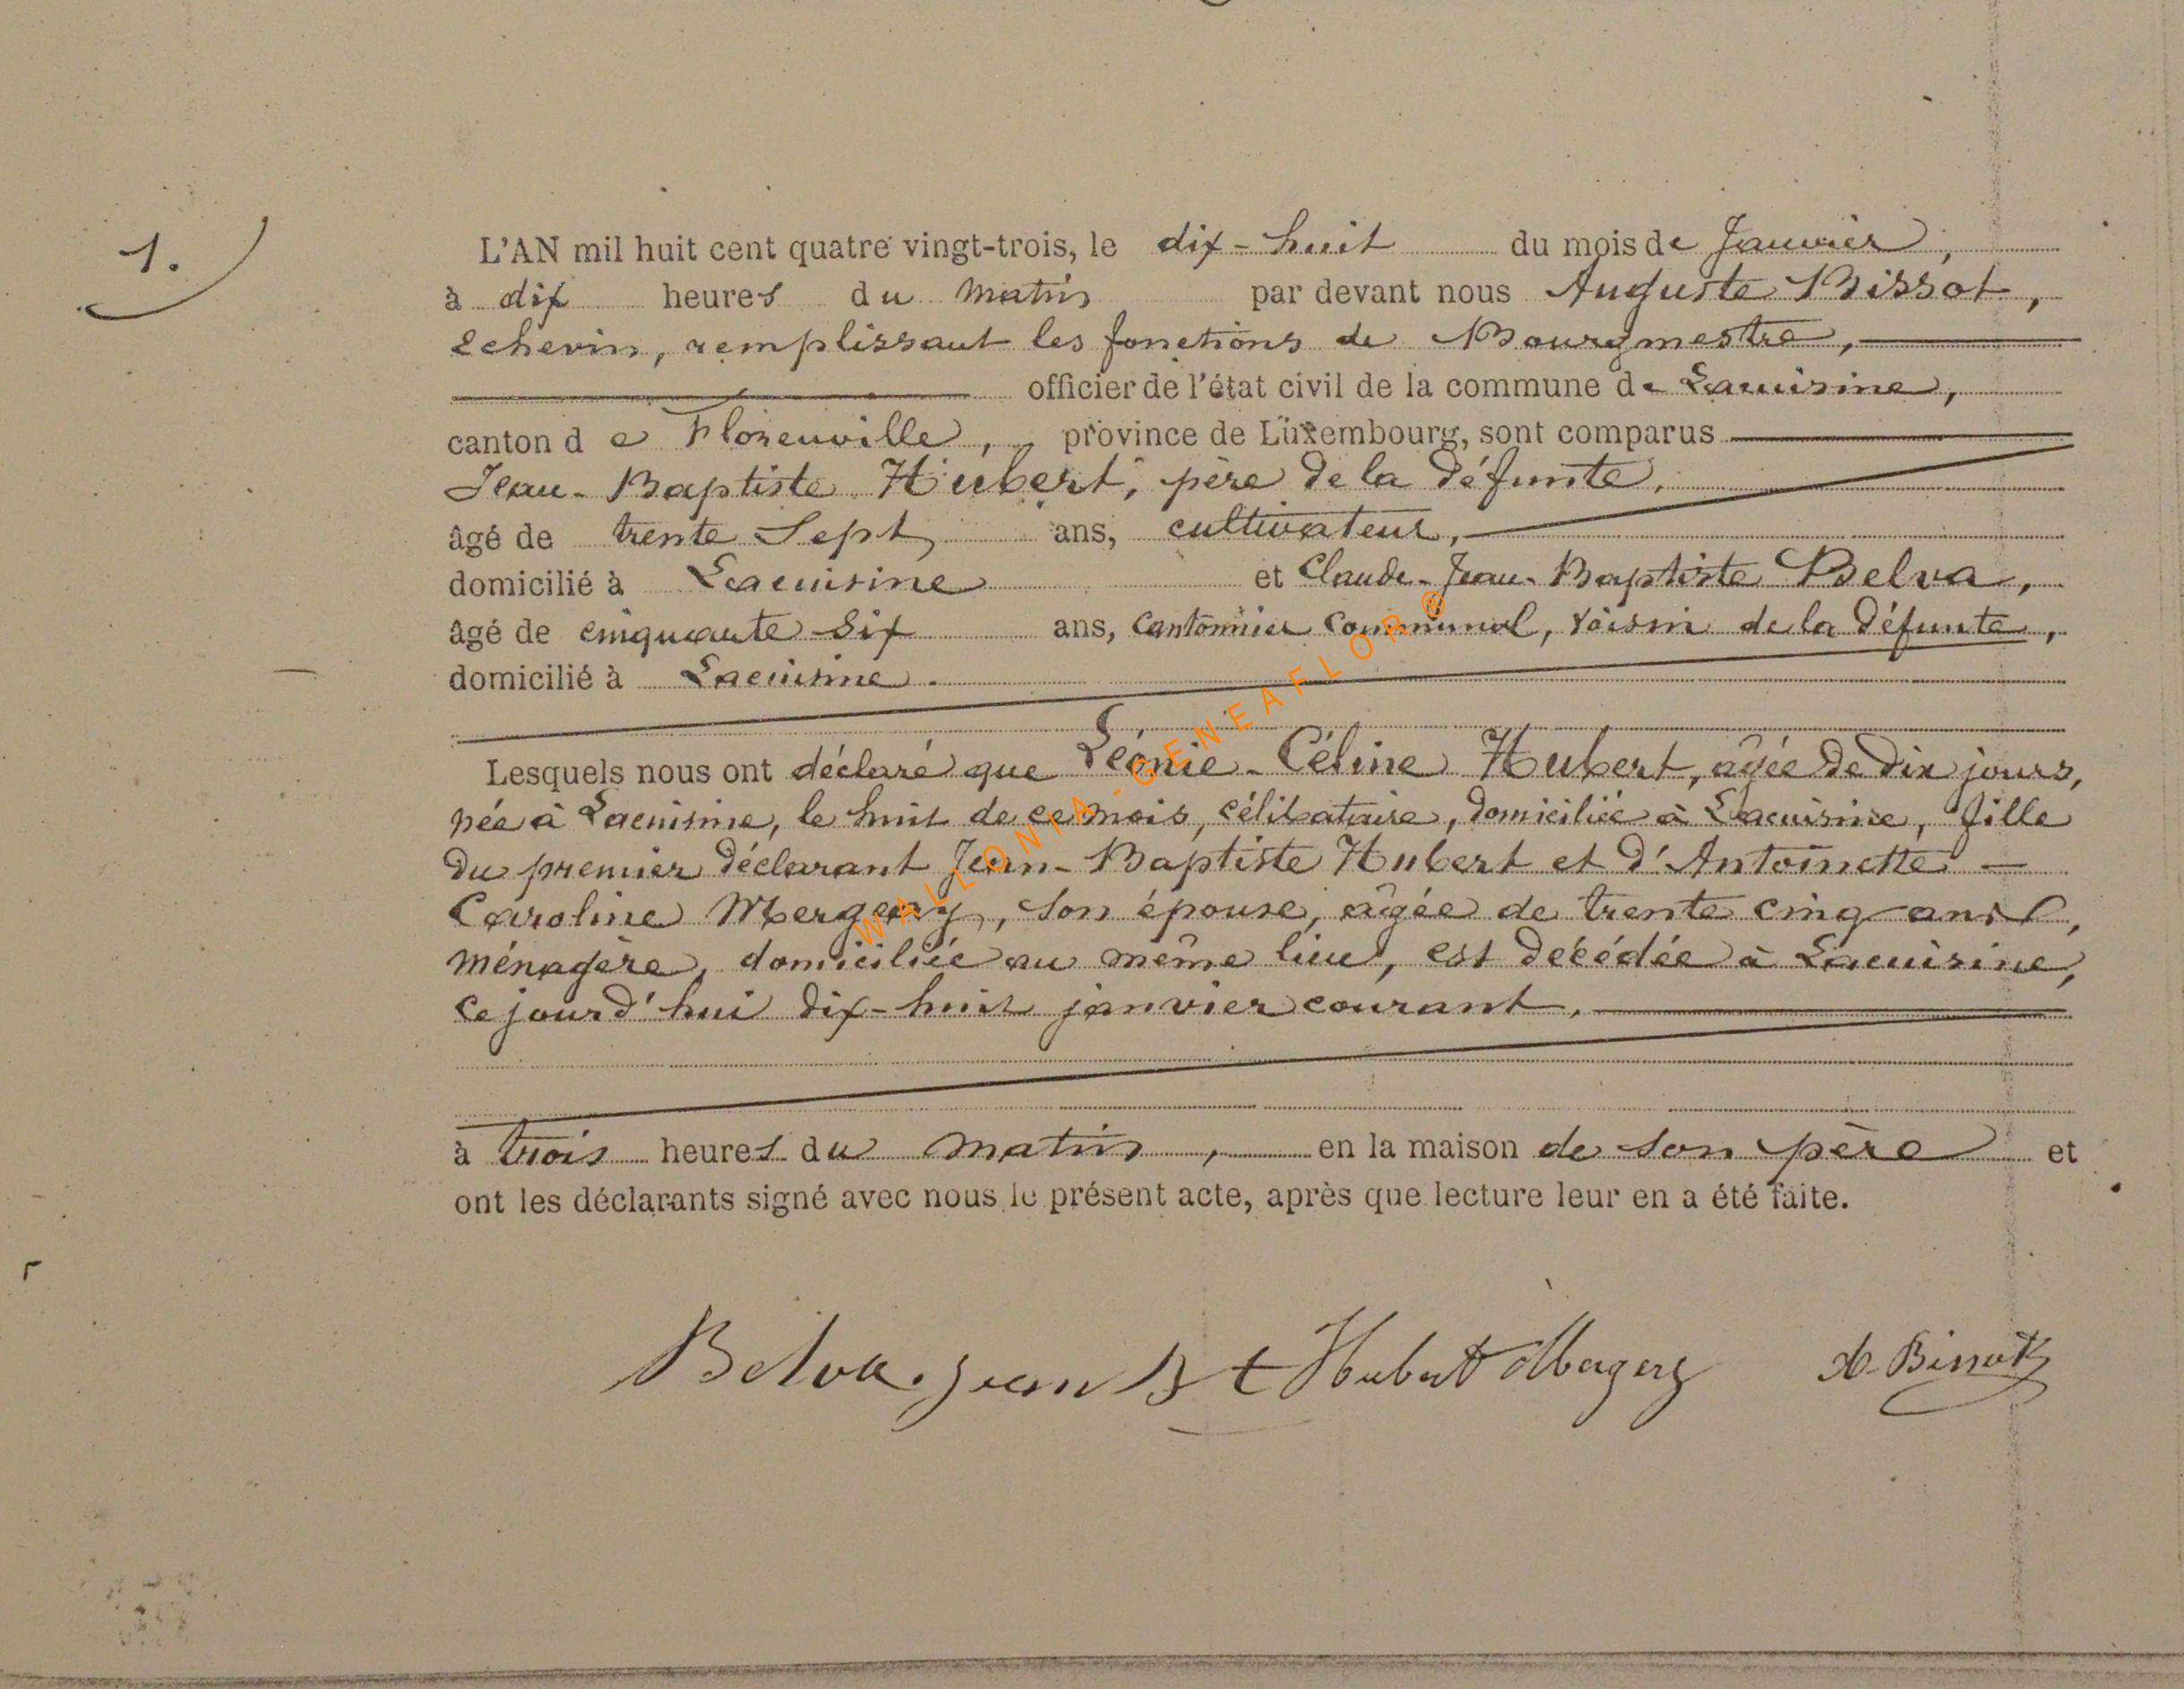 1.
L'AN mil huit cent quatre vingt-trois, le dix-huit du mois de Janvier,
à dix heures du matin par devant nous Auguste Bissot,
Echevin, remplissant les fonctions de Bourgmestre,
officier de l'état civil de la commune de Lacuisine,
canton de Florenville, province de Luxembourg, sont comparus
Jean-Baptiste Hubert, père de la défunte,
âgé de trente Sept ans, cultivateur,
domicilié à Lacuisine et Claude-Jean-Baptiste Belva,
âgé de cinquante six ans, Cantonnier Communal, voisin de la défunte,
domicilié à Lacuisine.
Lesquels nous ont déclaré que Léonie-Céline Hubert, âgée de dix jours,
née à Lacuisine, le huit de ce mois, célibataire, domiciliée à Lacuisine, fille
du premier déclarant Jean-Baptiste Hubert et d'Antoinette
Caroline Mergeay, son épouse, âgée de trente cinq ans,
ménagère, domiciliée au même lieu, est décédée à Lacuisine,
ce jourd'hui dix-huit janvier courant.
à trois heures du matin, en la maison de son père et
ont les déclarants signé avec nous le présent acte, après que lecture leur en a été faite.
Belva. jean Bt Hubert A. Bissot
WALLONIA-GENEAFLOR®